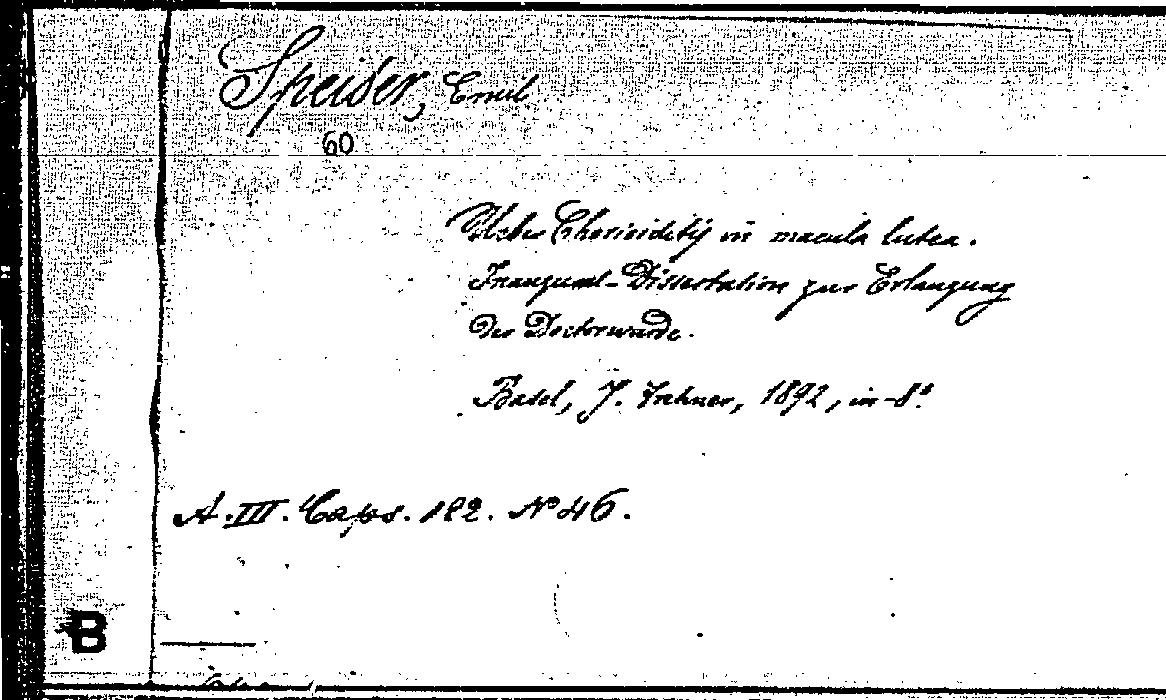 Speiser, Emil
60
Ueber Chorioiditis in macula lutea.
Inaugural-Dissertation zur Erlangung
der Doctorwürde.
Basel, J. Frehner, 1892, in-8°.
A. III. Caps. 182. No 46.
B